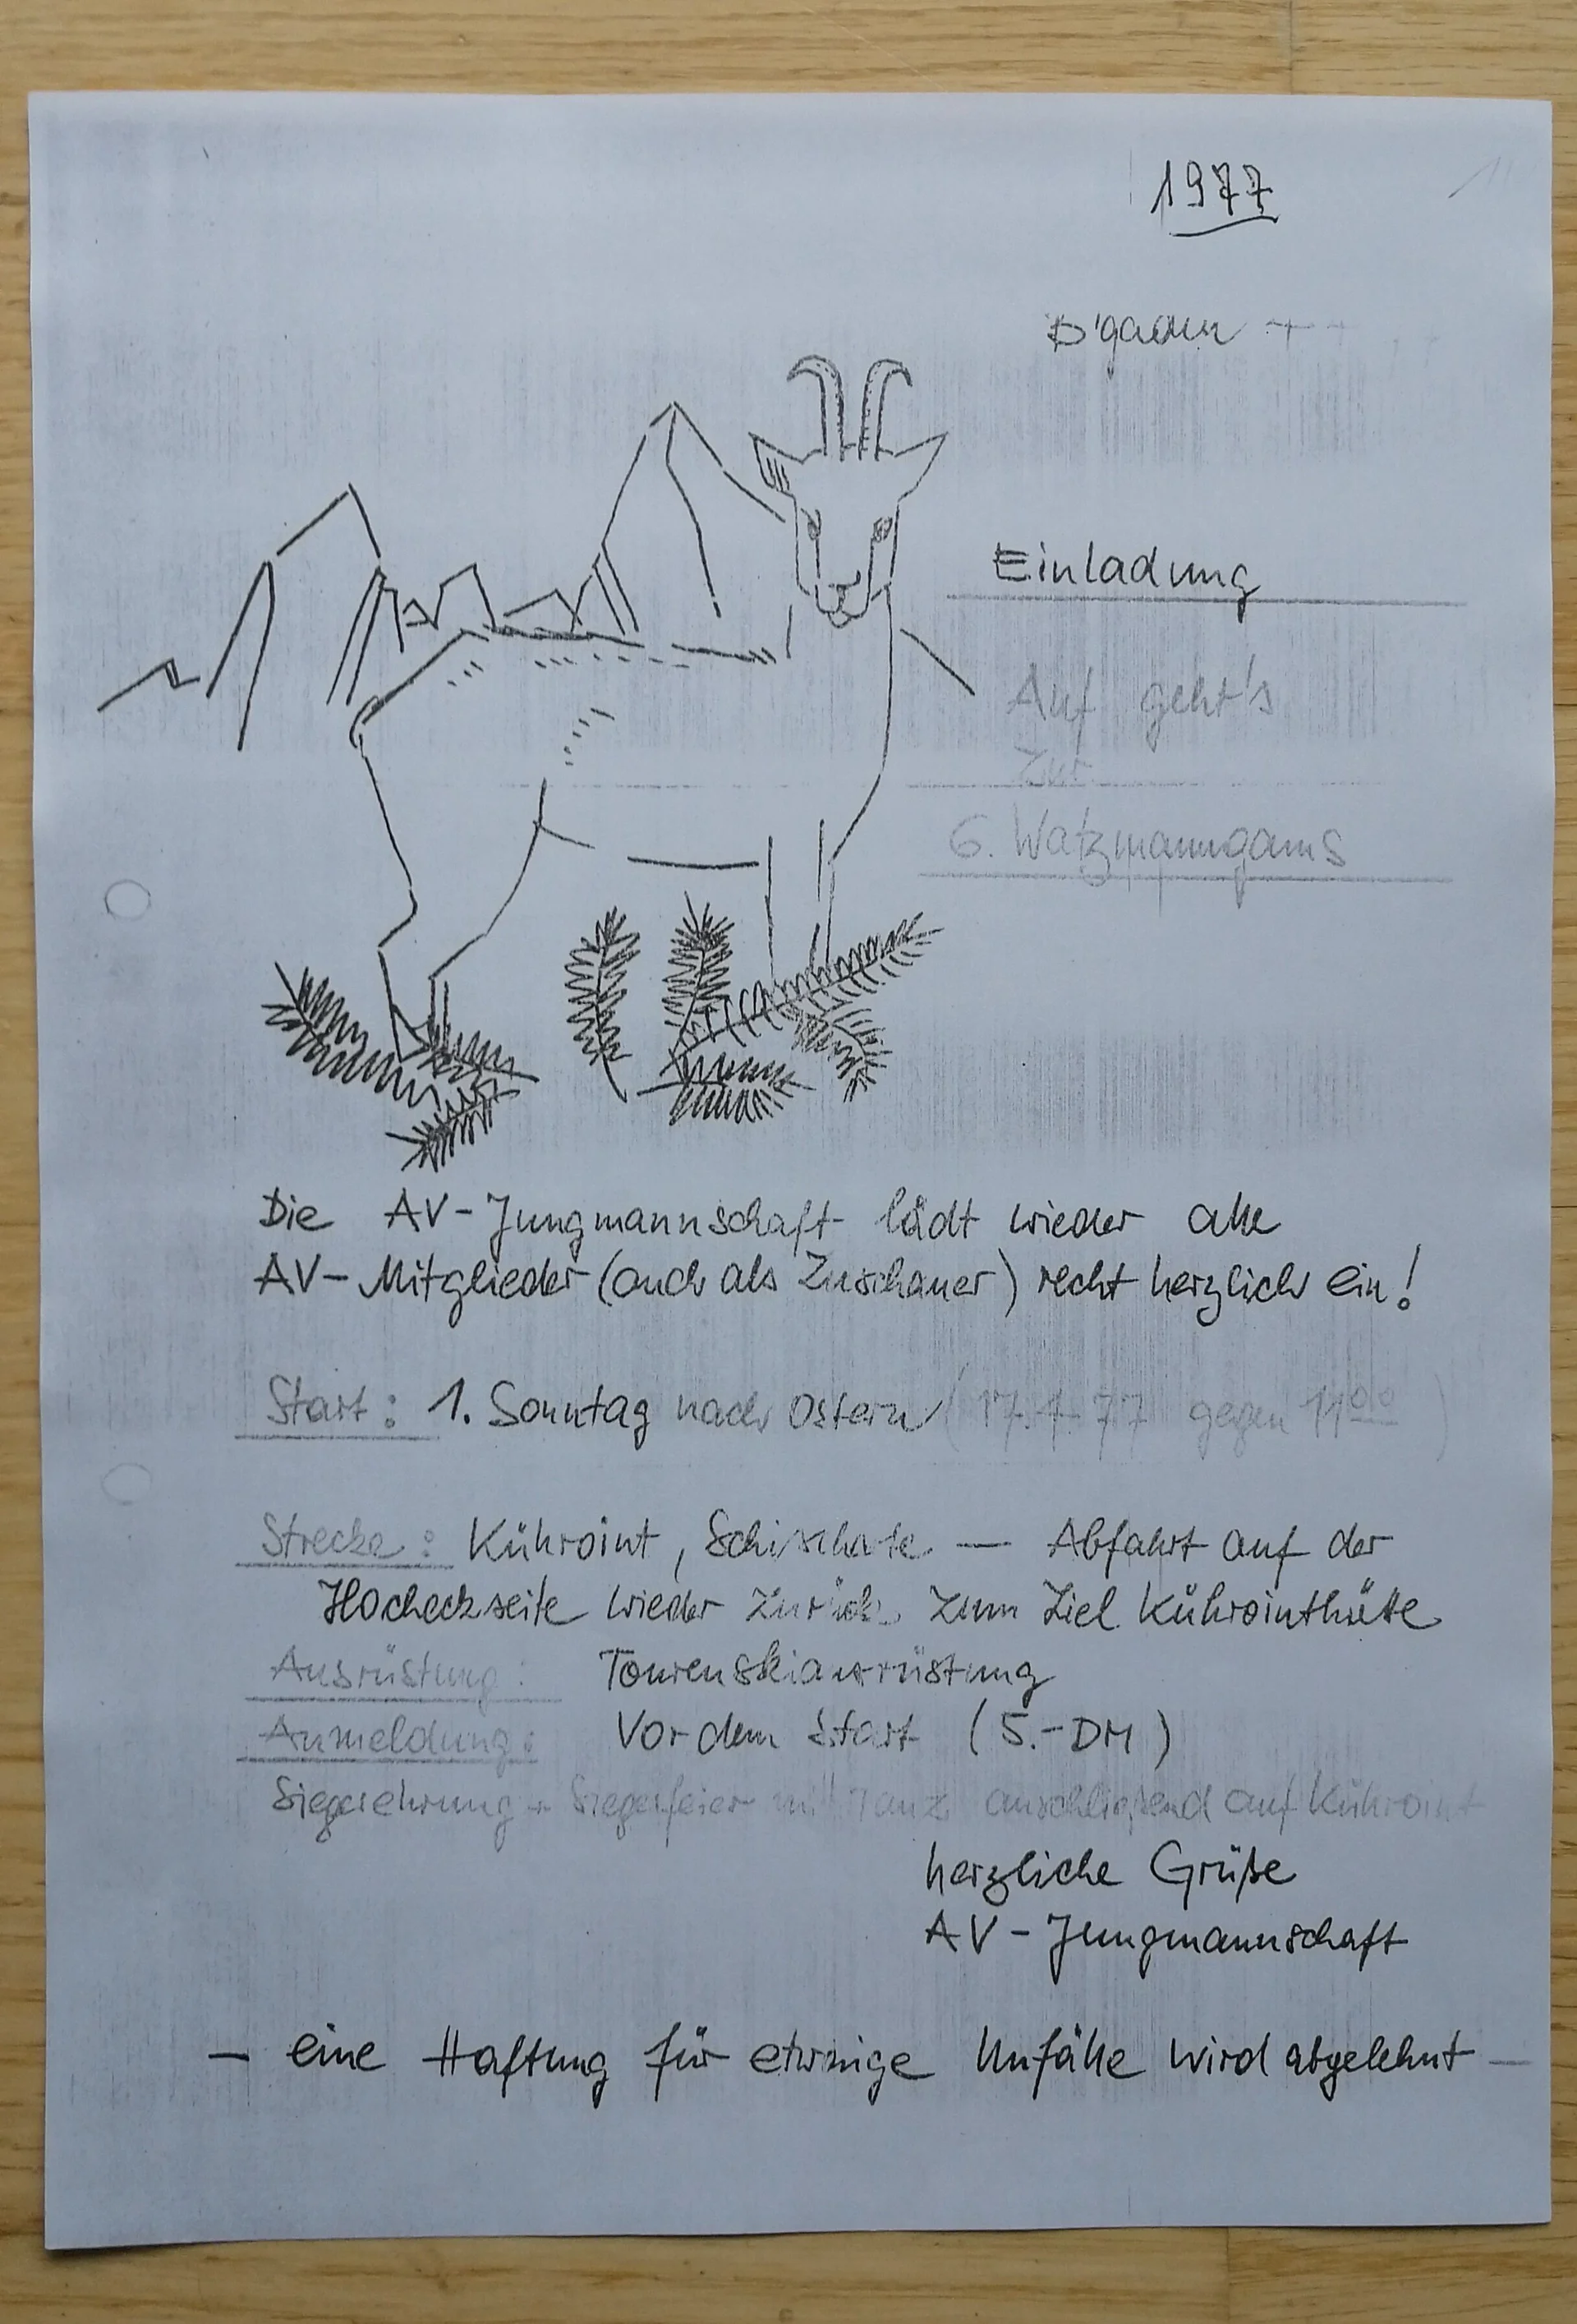 1977
B'gaden
Einladung
Auf geht's
Zur
6. Watzmanngams
Die AV-Jungmannschaft lädt wieder alle
AV-Mitglieder (auch als Zuschauer) recht herzlich ein!
Start: 1. Sonntag nach Ostern (17.4.77 gegen 11⁰⁰)
Strecke: Kühroint, — Abfahrt auf der
Hocheckseite wieder zurück zum Ziel Kührointhütte
Ausrüstung: Tourenskiausrüstung
Anmeldung: Vor dem Start (5.-DM)
Siegerehrung + Siegesfeier mit Tanz anschließend auf Kühroint
herzliche Grüße
AV-Jungmannschaft
— eine Haftung für etwaige Unfälle wird abgelehnt —